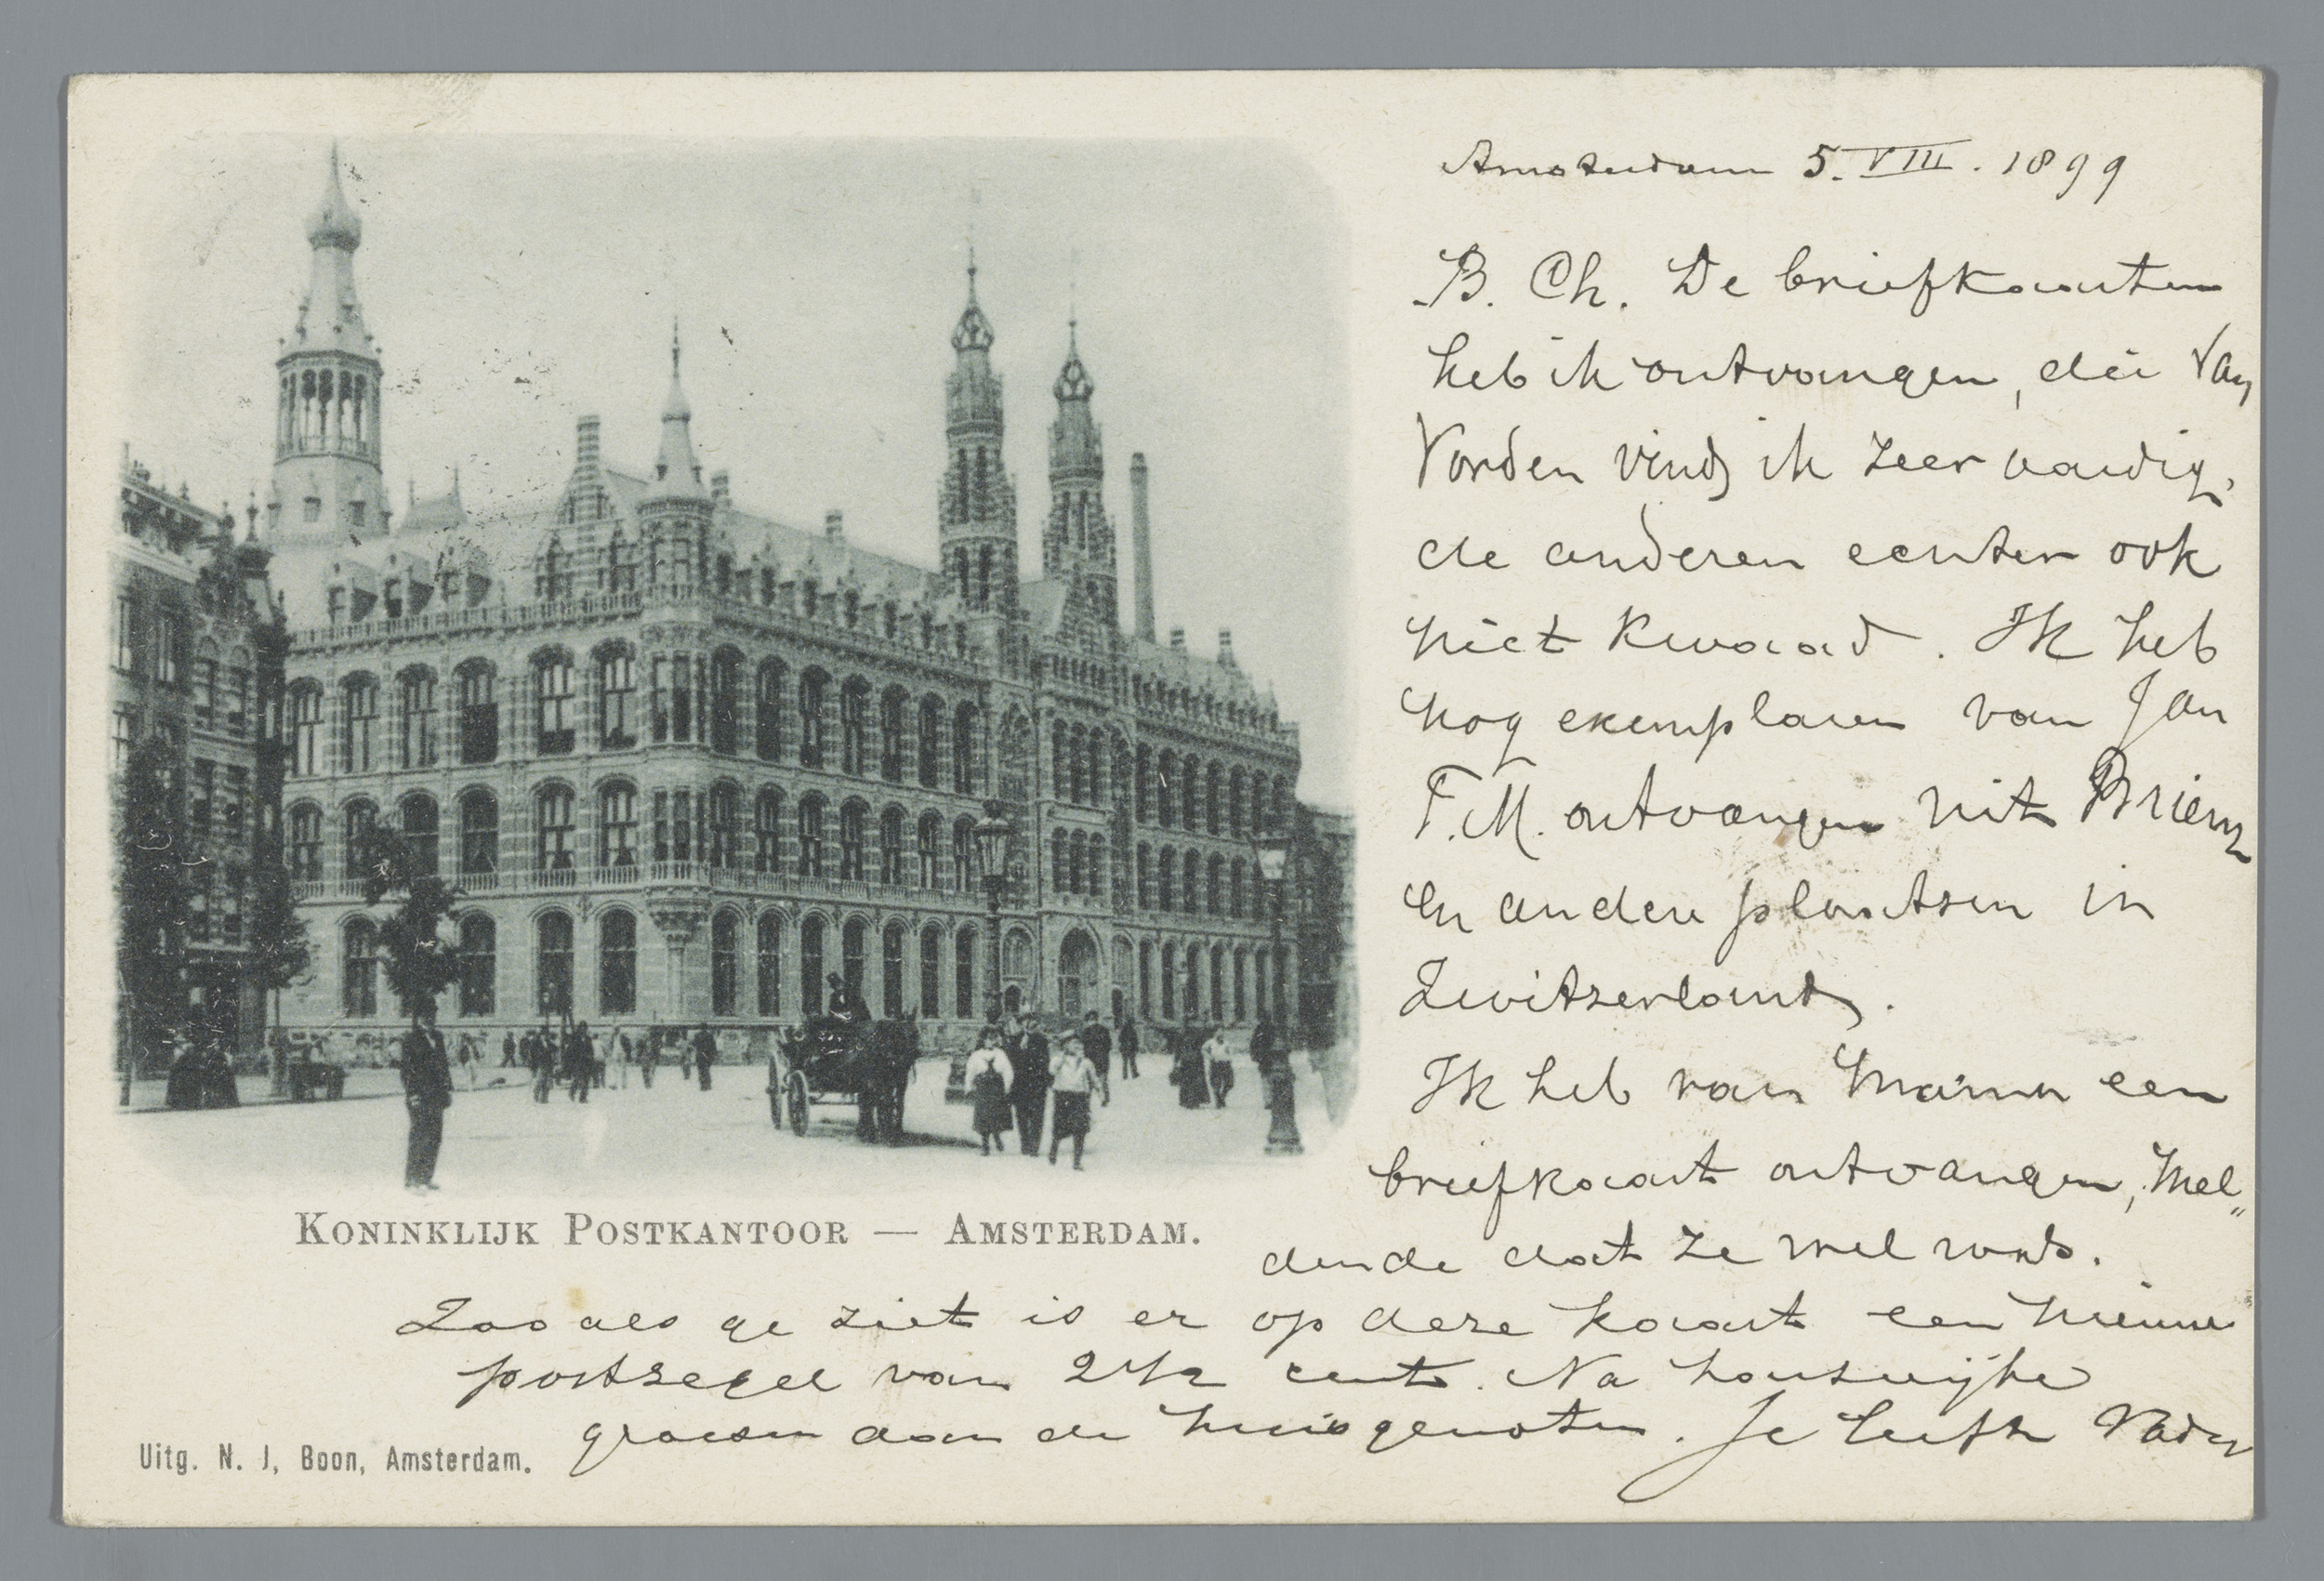 Amsterdam 5. VIII. 1899
B. Ch. De briefkaarten
heb ik ontvangen, die van
Vorden vind ik zeer aardig,
de anderen echter ook
niet kwaad. Ik heb
nog exemplaren van Jan
F. M. ontvangen uit Brienz
en andere plaatsen in
Zwitserland.
Ik heb van Mama een
briefkaart ontvangen, mel„
dende dat ze wel was.
KONINKLIJK POSTKANTOOR — AMSTERDAM.
Zooals ge ziet is er op deze kaart een nieuwe
postzegel van 2 1/2 cent. Na
groeten aan de huisgenoten. Je liefh Vader
Uitg. N. J, Boon, Amsterdam.